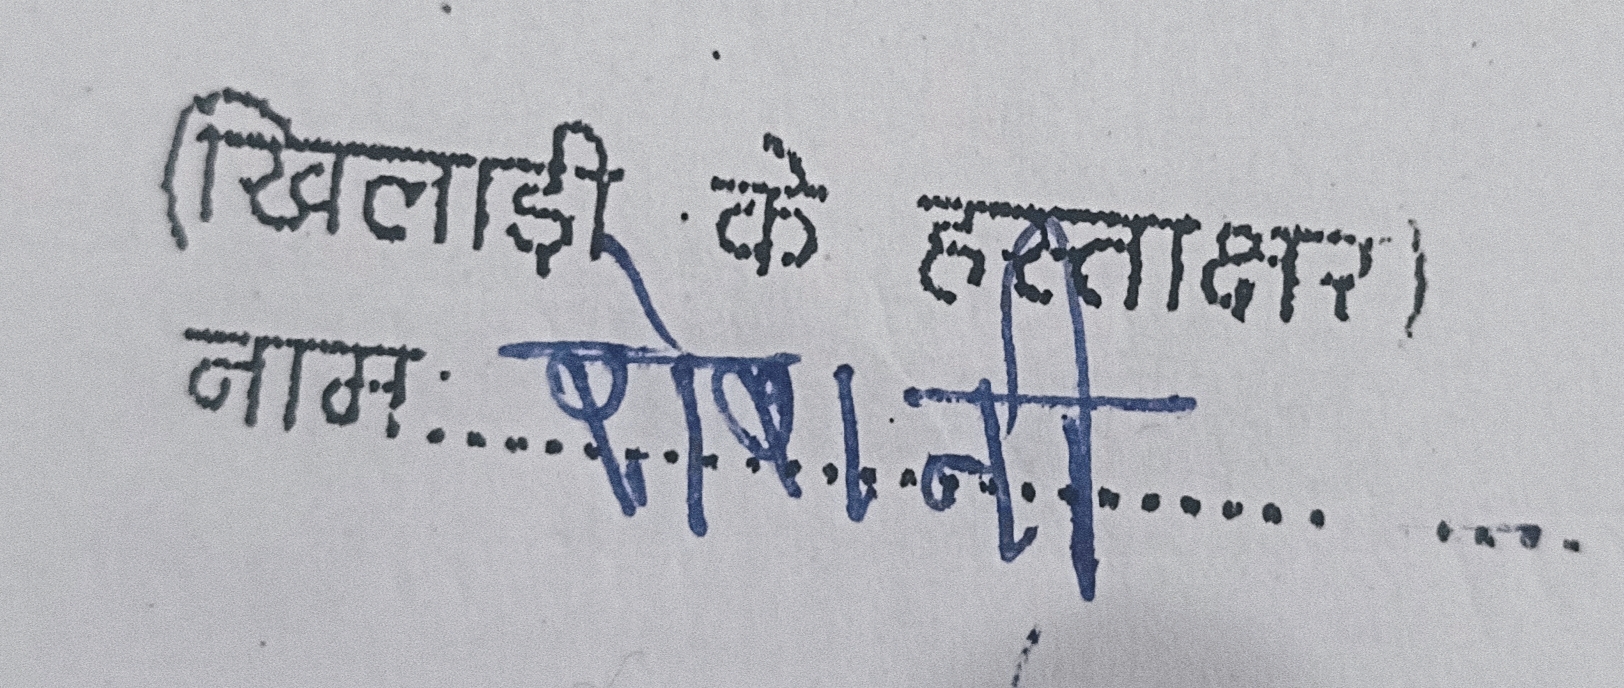 (खिलाड़ी के हस्ताक्षर)
नाम..................